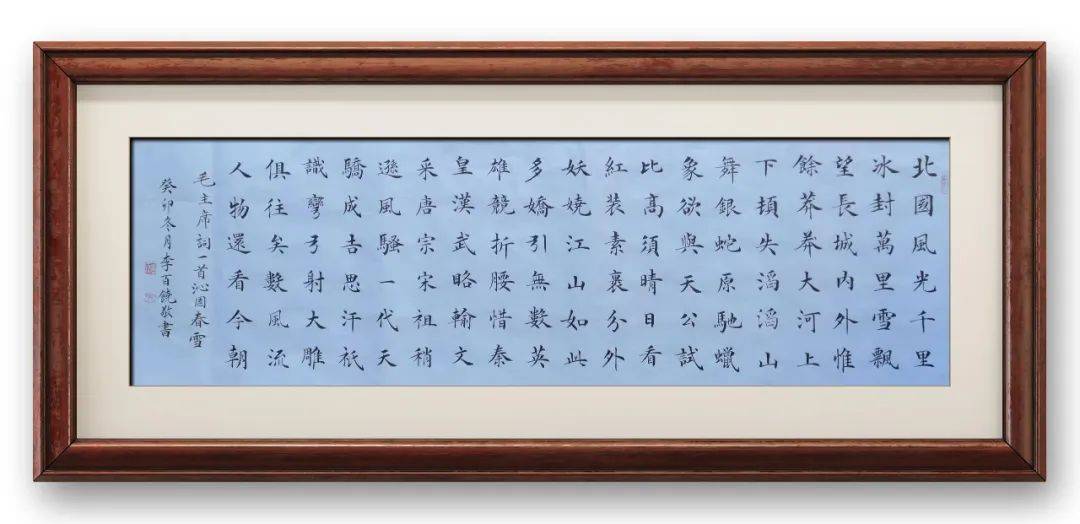 北國風光千里
冰封萬里雪飄
望長城内外惟
餘莽莽大河上
下頓失滔滔山
舞銀蛇原馳蠟
象欲與天公試
比髙須晴日看
紅裝素裹分外
妖嬈江山如此
多嬌引無數英
雄競折腰惜秦
皇漢武略輸文
采唐宗宋祖稍
遜風騷一代天
驕成吉思汗祇
識彎弓射大雕
俱往矣數風流
人物還看今朝
毛主席詞一首沁园春雪
癸卯冬月李百饒敬書